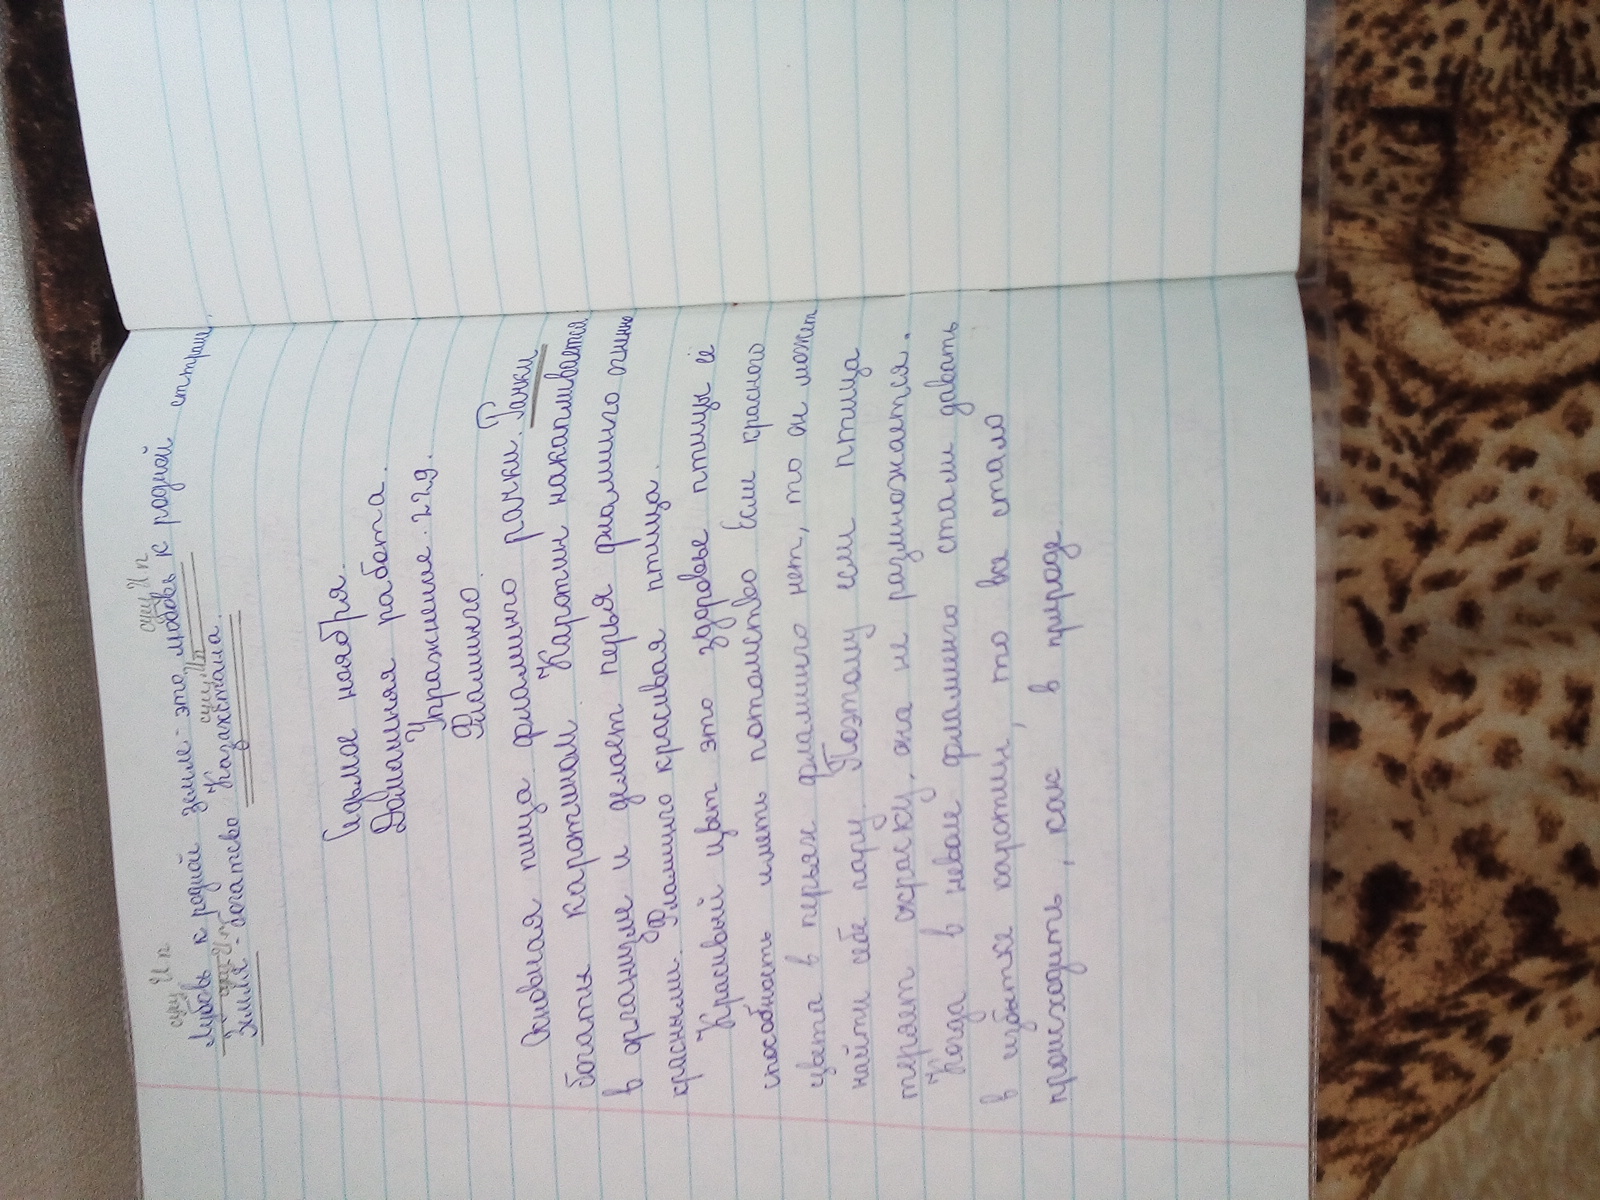 сущ И п сущ И п
Любовь к родной земле - это любовь к родной
сущ И п сущ И п
Земля - богатсво Казахстана.
Седьмое ноября.
Домашняя работа.
Упражнение. 229.
Фламинго.
Основная пища фламинго рачки. Рачки
богаты каротином. Каротин накапливается
в организме и делает перья фламинго огнино
красными. Фламинго красивая птица.
Красивый цвет это здоровье птицы её
способность иметь потомство Если красного
цвета в перьях фламинго нет, то он может
найти себе пару. Поэтому если птица
теряет окраску, она не размножается.
Когда в неволе фламенго стали давать
в избытке каротин, то вы стало
происходить, как в природе